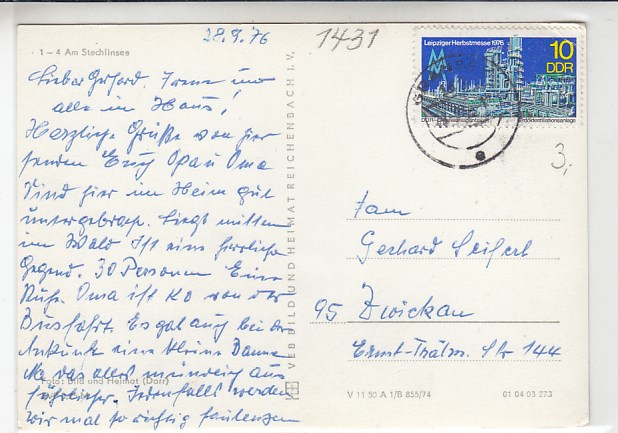 28.9.76
1431
1 – 4 Am Stechlinsee
Lieber Gerhard, Irene und
alle im Haus!
Herzliche Grüße von hier
senden Euch Opa u Oma
Sind hier im Heim gut
untergebracht. Liegt mitten
im Wald Ist eine herrliche
Gegend. 30 Personen Eine
Ruhe. Oma ist KO von der
Busfahrt. Es gab auch bei der
Ankunft eine kleine Panne
Na das alles mündlich aus
führlicher. Jedenfalls werden
wir mal so richtig faulenzen
Foto: Bild und Heimat (Darr)
VEB BILD UND HEIMAT REICHENBACH i. V.
Leipziger Herbstmesse 1976
MM
10
DDR
Erdöldestillationsanlage
3,
Fam
Gerhard Seifert
95 Zwickau
Ernst-Thälm. Str 144
V 11 50 A 1/B 855/74
01 04 03 273